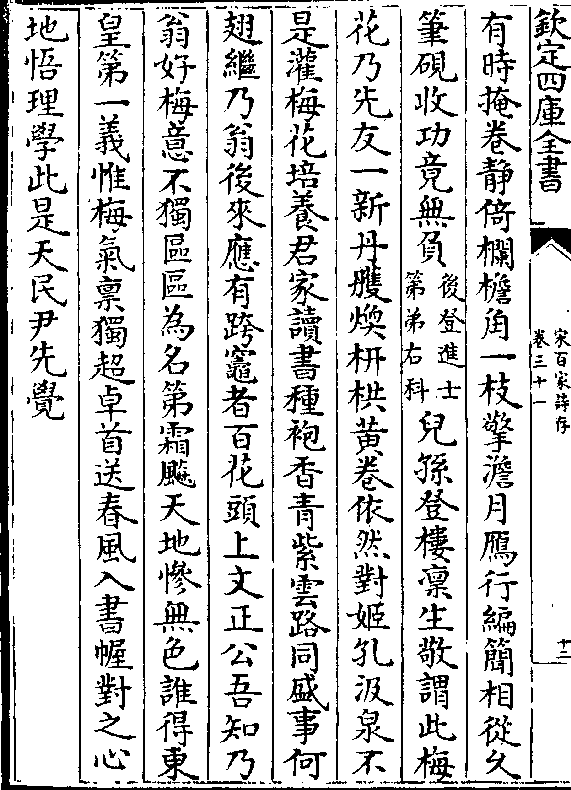 欽定四庫全書
宋百家詩存
卷三十一
十二
有時掩卷静倚欄檐角一枝擎澹月鴈行編簡相從久
筆硯收功竟無負後登進士第弟右科兒孫登樓凜生敬謂此梅
花乃先友一新丹雘煥枅栱黄卷依然對姬孔汲泉不
是灌梅花培養君家讀書種袍香青紫雲路同盛事何
翅繼乃翁後來應有跨竈者百花頭上文正公吾知乃
翁好梅意不獨區區為名第霜飈天地慘無色誰得東
皇第一義惟梅氣禀獨超卓首送春風入書幄對之心
地悟理學此是天民尹先覺